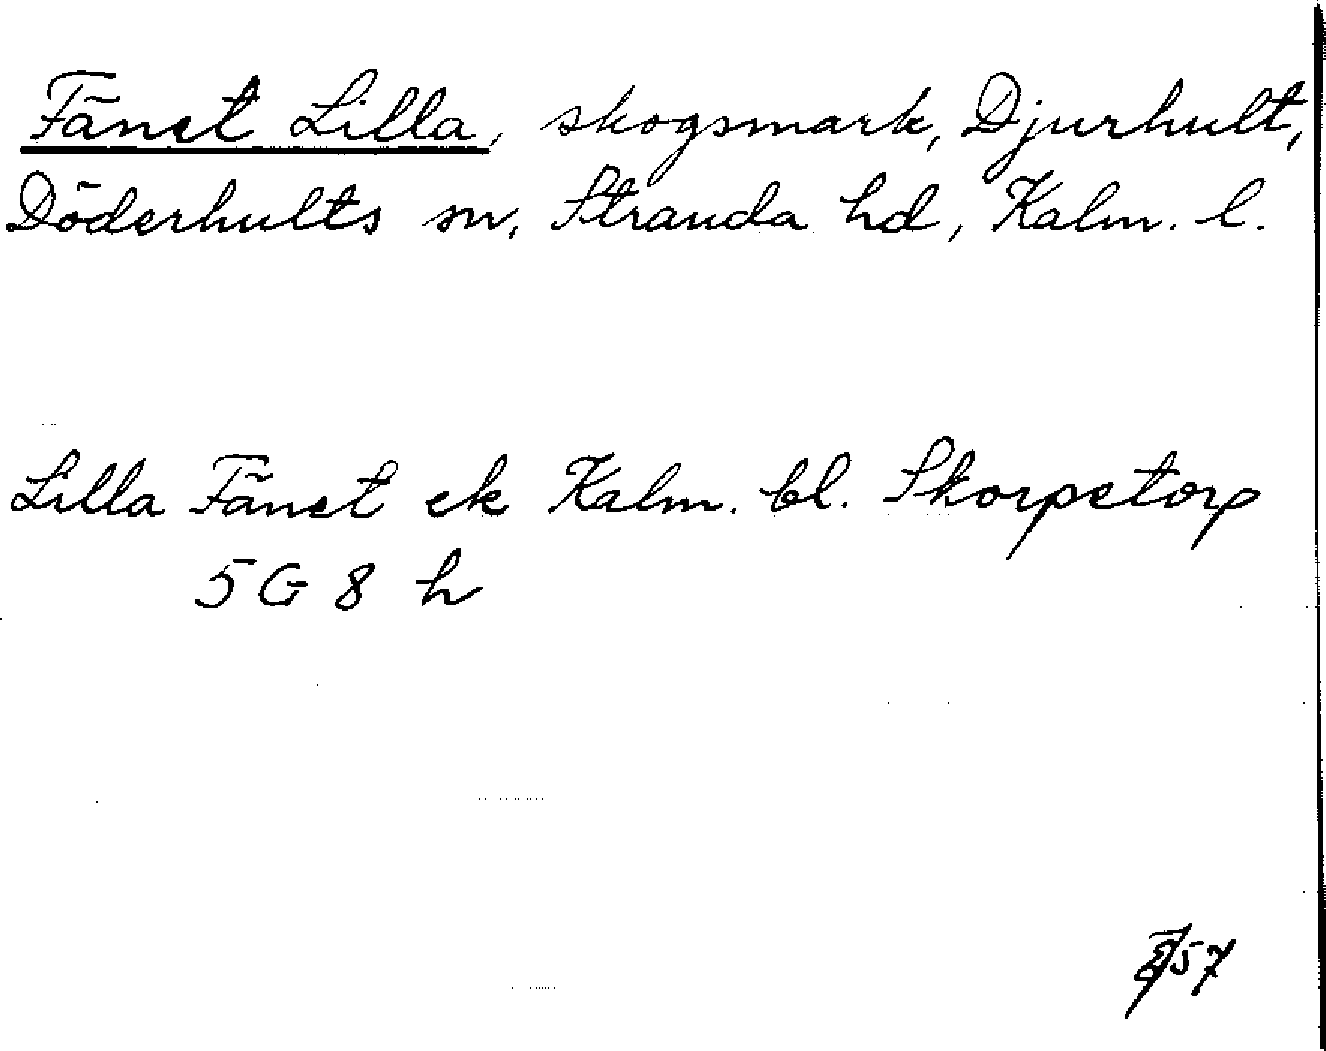 Fänet Lilla, skogsmark, Djurhult,
Döderhults sn, Stranda hd, Kalm. l.
Lilla Fänet ek Kalm. bl. Skorpetorp
5G 8 h
57